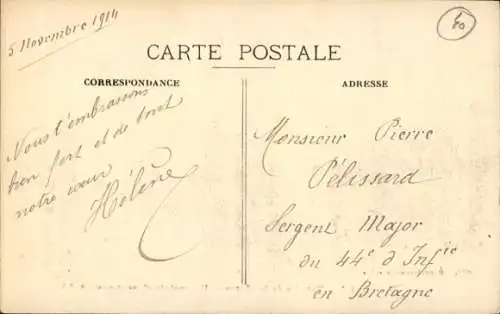 5 Novembre 1914
40
CARTE POSTALE
CORRESPONDANCE
Nous t'embrassons
bien fort et de tout
notre cœur
Hélène
ADRESSE
Monsieur Pierre
Pélissard
Sergent Major
du 44e d'Infie
en Bretagne